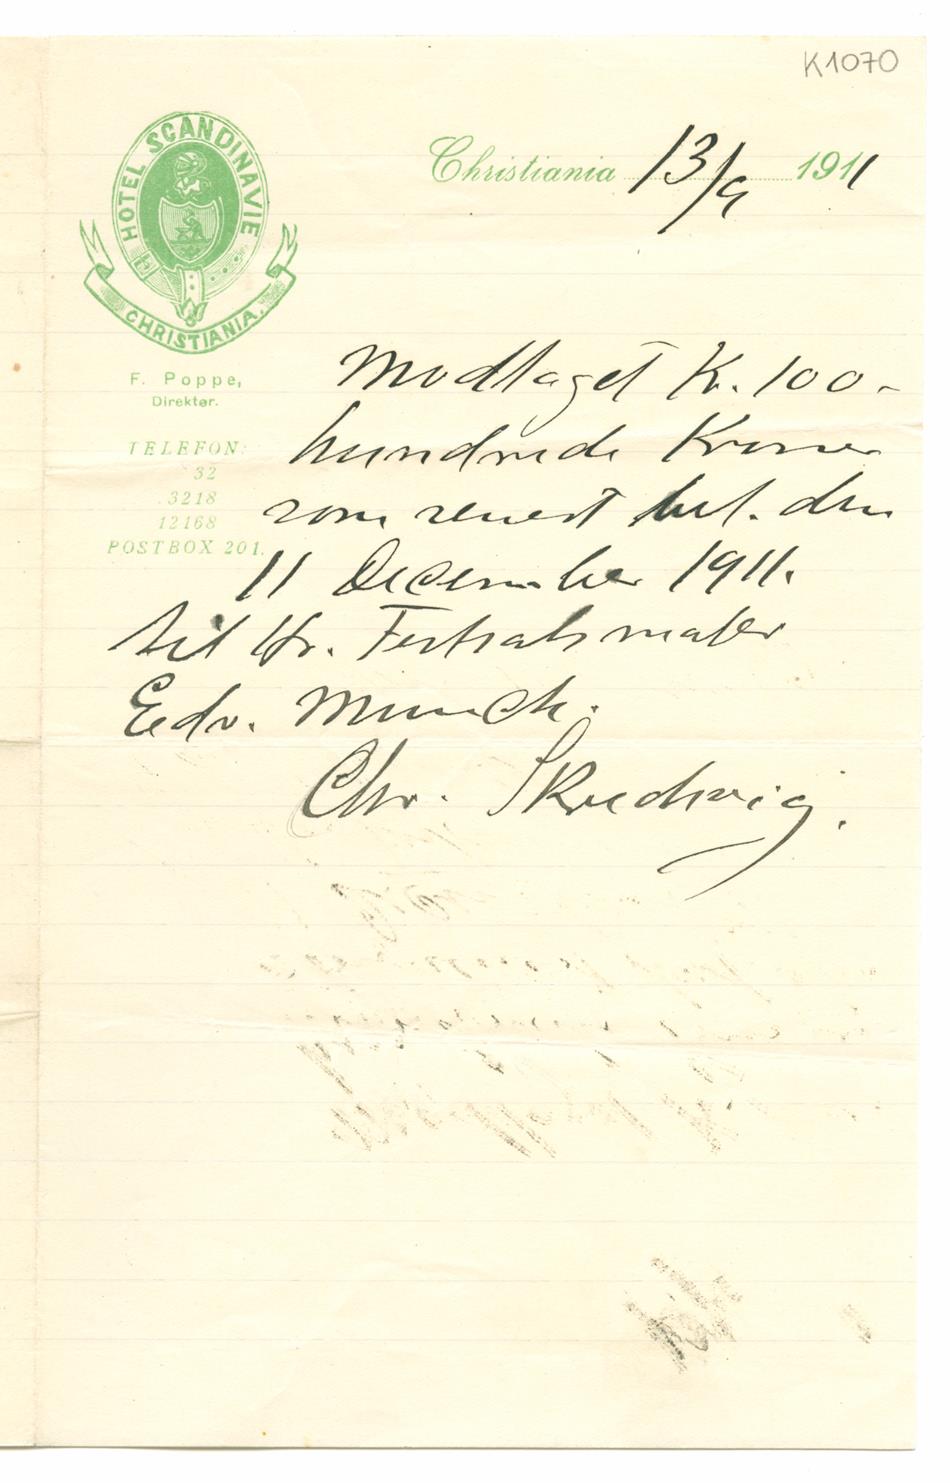 K1070
HOTEL SCANDINAVIE
CHRISTIANIA.
Christiania 13/9 1911
F. Poppe,
Direktør.
TELEFON:
32
3218
12168
POSTBOX 201.
Modtaget Kr. 100-
hundrede Kroner
som senest bet. den
11 December 1911.
til Hr. maler
Edv. Munch.
Chr. Skredsvig.